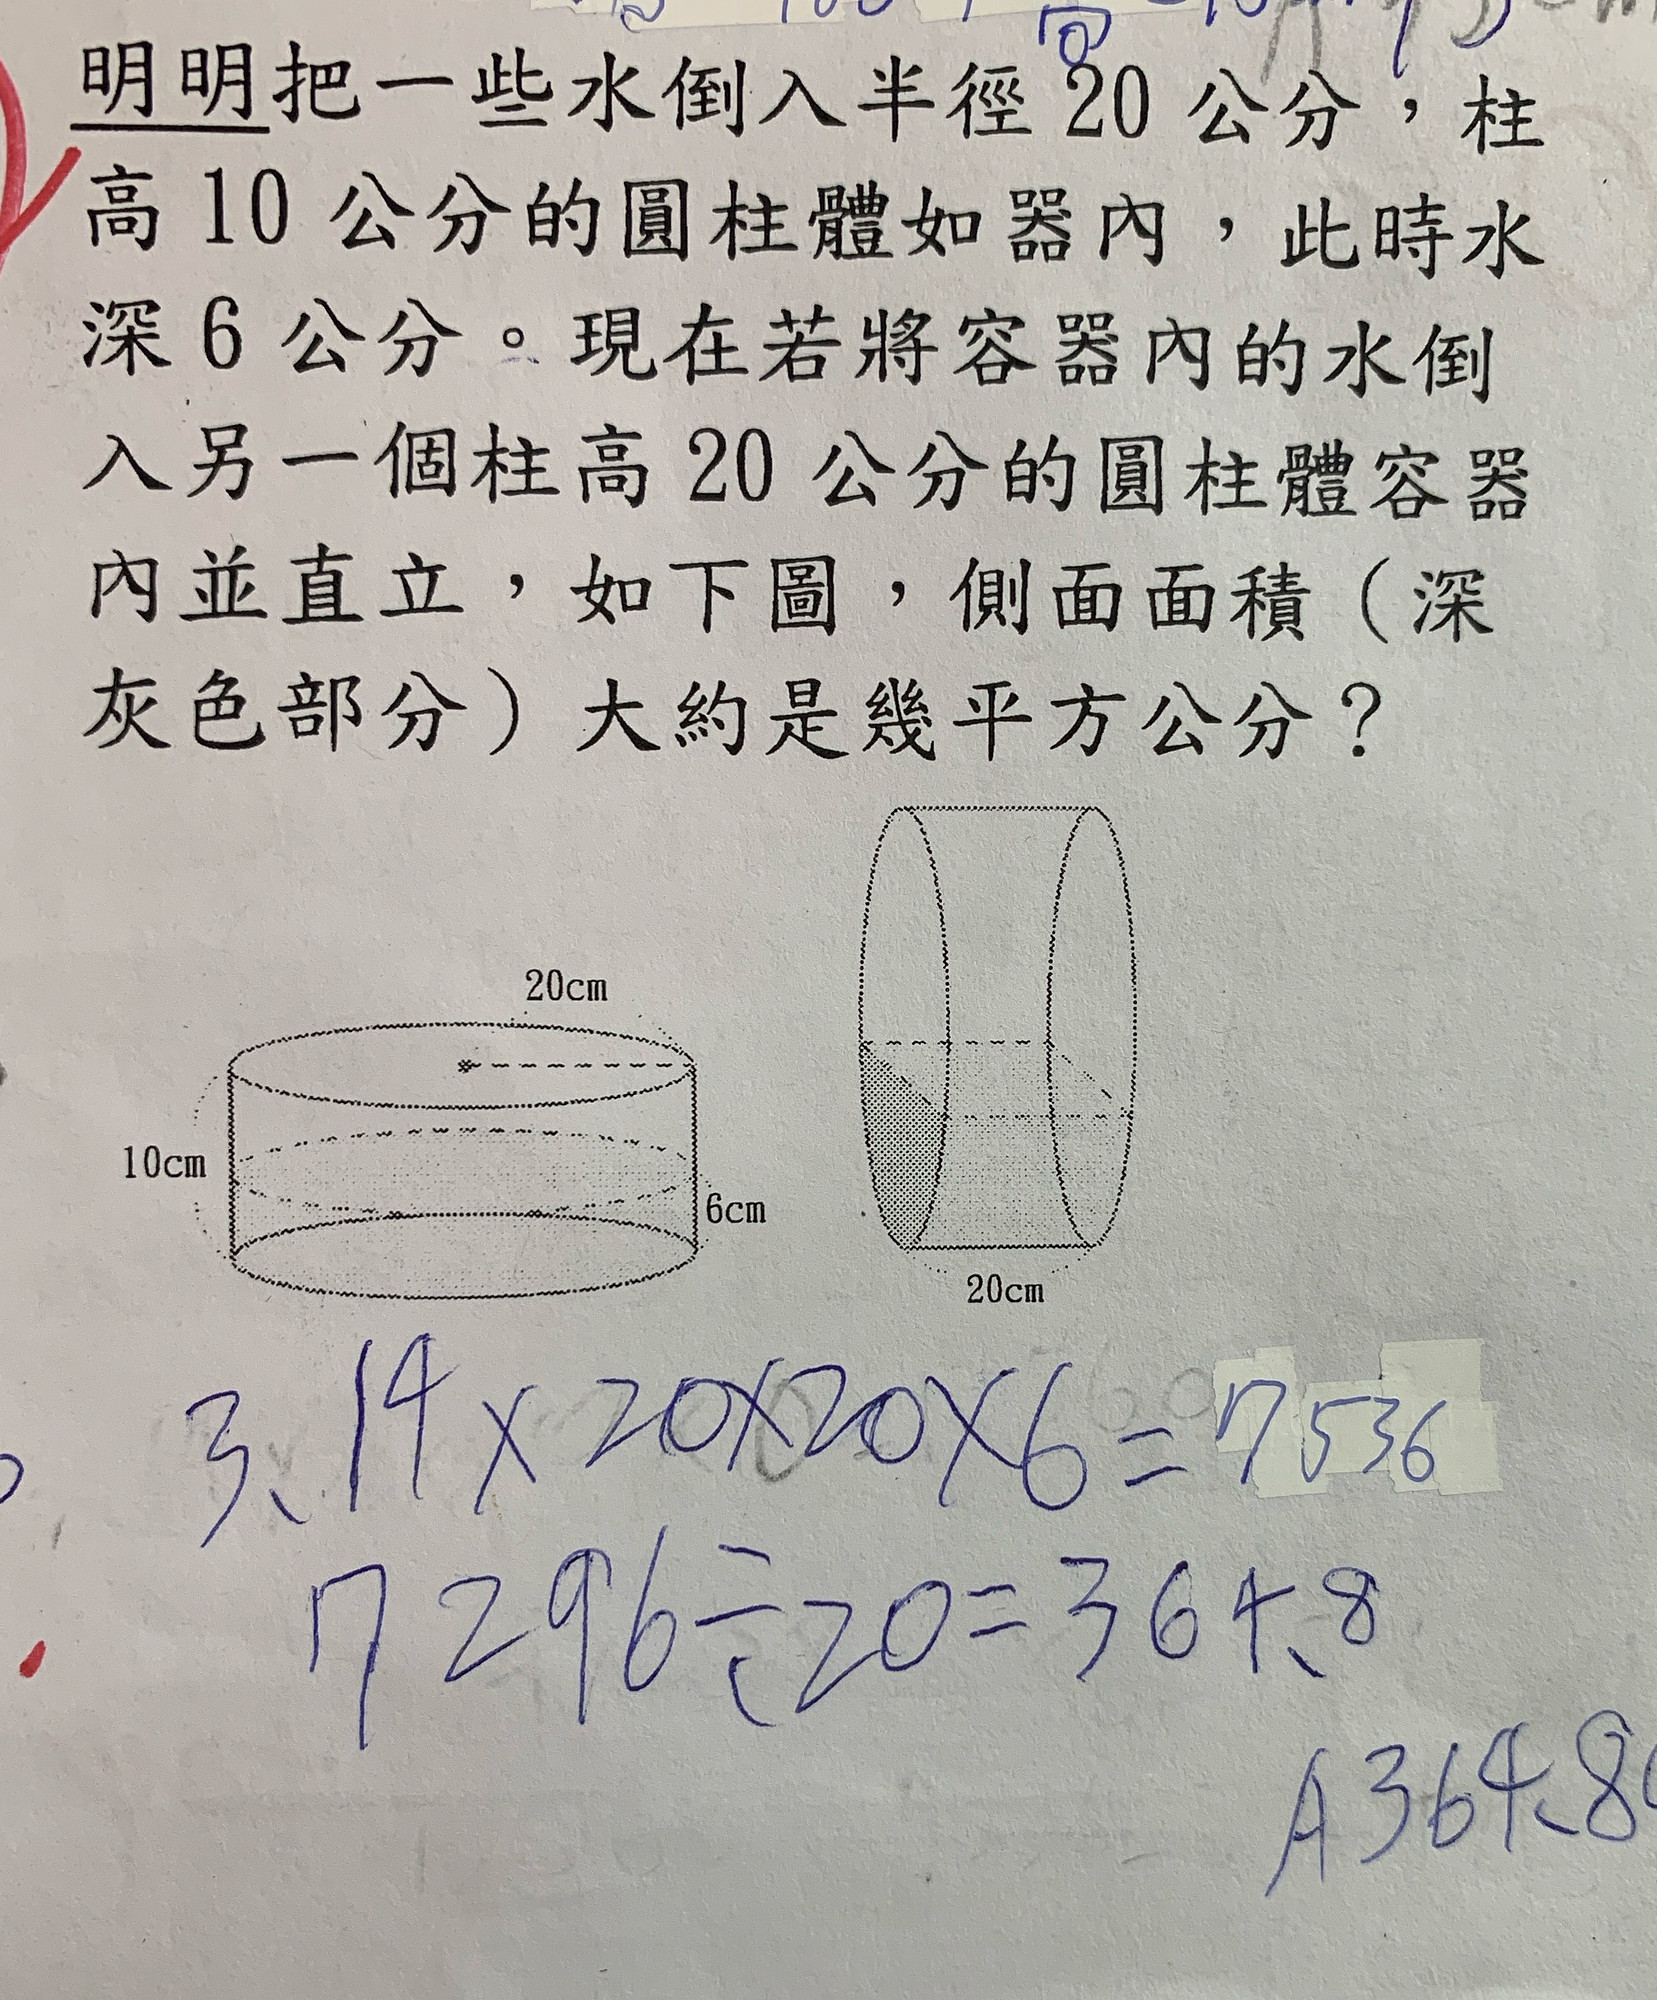 明明把一些水倒入半徑20公分，柱
高10公分的圓柱體如器內，此時水
深6公分。現在若將容器內的水倒
入另一個柱高20公分的圓柱體容器
內並直立，如下圖，側面面積（深
灰色部分）大約是幾平方公分？
20cm
10cm
6cm
20cm
3.14×20×20×6=7536
7296÷20=364.8
A364.8